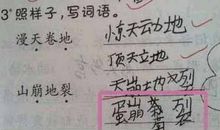 3°照样子,写词语。
漫天卷地 惊天动地
顶天立地
山崩地裂 天崩地裂
蛋崩 裂